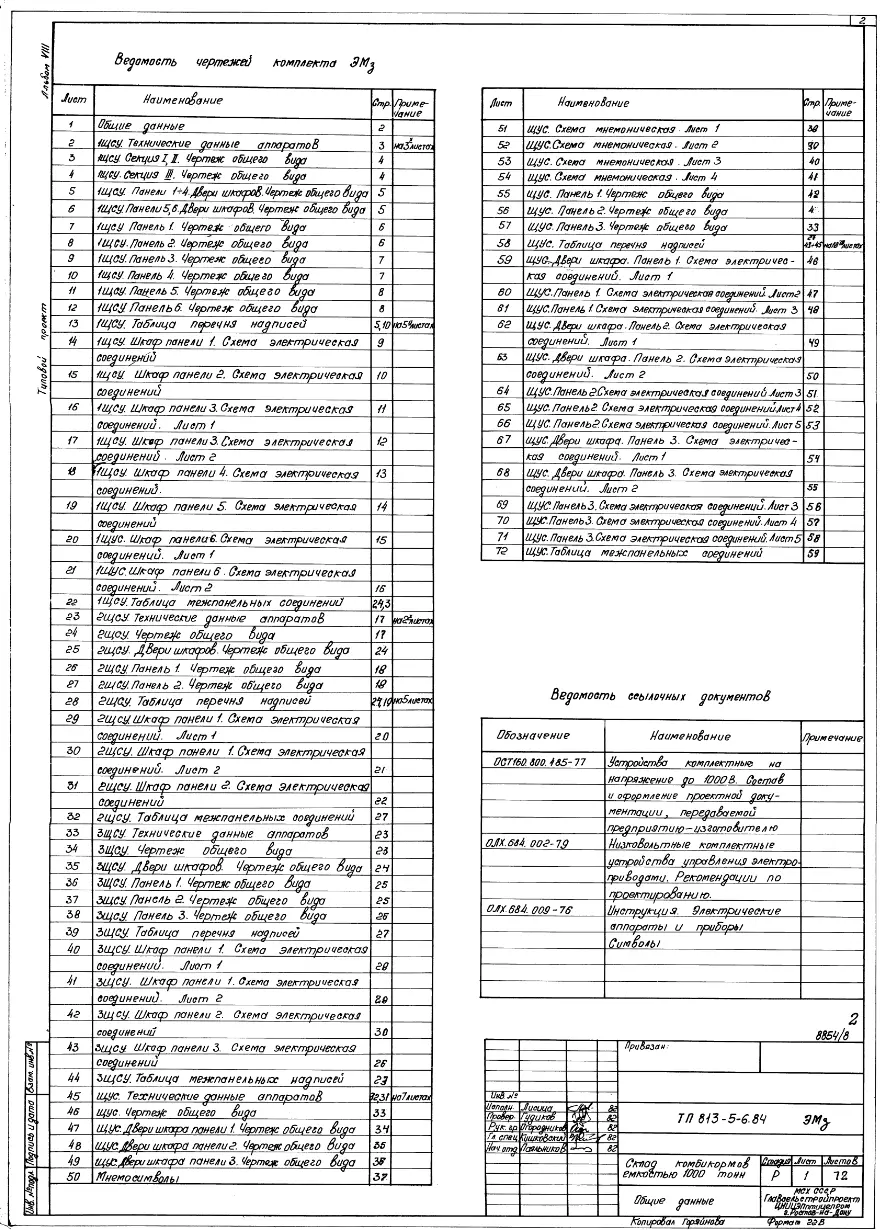 2
Альбом VIII
Типовой проект
Ведомость чертежей комплекта ЭМз
Лист Наименование Стр. Приме-
чание
1 Общие данные 2
2 1ЩСУ. Технические данные аппаратов 3 на 3х листах
3 1ЩСУ. Секция I, II. Чертеж общего вида 4
4 1ЩСУ. Секция III. Чертеж общего вида 4
5 1ЩСУ. Панели 1÷4. Двери шкафов. Чертеж общего вида 5
6 1ЩСУ. Панели 5,6. Двери шкафов. Чертеж общего вида 5
7 1ЩСУ Панель 1. Чертеж общего вида 6
8 1ЩСУ. Панель 2. Чертеж общего вида 6
9 1ЩСУ. Панель 3. Чертеж общего вида 7
10 1ЩСУ. Панель 4. Чертеж общего вида 7
11 1ЩСУ. Панель 5. Чертеж общего вида 8
12 1ЩСУ Панель 6. Чертеж общего вида 8
13 1ЩСУ. Таблица перечня надписей 5,10 на 5и листах
14 1ЩСУ. Шкаф панели 1. Схема электрическая 9
соединений
15 1ЩСУ. Шкаф панели 2. Схема электрическая 10
соединений
16 1ЩСУ. Шкаф панели 3. Схема электрическая 11
соединений. Лист 1
17 1ЩСУ. Шкаф панели 3. Схема электрическая 12
соединений. Лист 2
18 1ЩСУ. Шкаф панели 4. Схема электрическая 13
соединений.
19 1ЩСУ. Шкаф панели 5. Схема электрическая 14
соединений
20 1ЩУС. Шкаф панели 6. Схема электрическая 15
соединений. Лист 1
21 1ЩУС. Шкаф панели 6. Схема электрическая
соединений. Лист 2 16
22 1ЩСУ. Таблица межпанельных соединений 24,3
23 2ЩСУ. Технические данные аппаратов 17 на 2х листах
24 2ЩСУ. Чертеж общего вида 17
25 2ЩСУ. Двери шкафов. Чертеж общего вида 24
26 2ЩСУ. Панель 1. Чертеж общего вида 18
27 2ЩСУ. Панель 2. Чертеж общего вида 18
28 2ЩСУ. Таблица перечня надписей на 5 листах
29 2ЩСУ. Шкаф панели 1. Схема электрическая
соединений. Лист 1 20
30 2ЩСУ. Шкаф панели 1. Схема электрическая
соединений. Лист 2 21
31 2ЩСУ. Шкаф панели 2. Схема электрическая
соединений 22
32 2ЩСУ. Таблица межпанельных соединений 27
33 3ЩСУ Технические данные аппаратов 23
34 3ЩСУ Чертеж общего вида 23
35 3ЩСУ. Двери шкафов. Чертеж общего вида 24
36 3ЩСУ. Панель 1. Чертеж общего вида 25
37 3ЩСУ Панель 2. Чертеж общего вида 25
38 3ЩСУ. Панель 3. Чертеж общего вида 26
39 3ЩСУ Таблица перечня надписей 27
40 3ЩСУ. Шкаф панели 1. Схема электрическая
соединений. Лист 1 28
41 3ЩСУ. Шкаф панели 1. Схема электрическая
соединений. Лист 2 29
42 3ЩСУ. Шкаф панели 2. Схема электрическая
соединений 30
43 3ЩСУ. Шкаф панели 3. Схема электрическая
соединений 26
44 3ЩСУ. Таблица межпанельных надписей 23
45 ЩУС. Технические данные аппаратов 32,31 на 7 листах
46 ЩУС. Чертеж общего вида 33
47 ЩУС. Двери шкафа панели 1. Чертеж общего вида 34
48 ЩУС. Двери шкафа панели 2. Чертеж общего вида 35
49 ЩУС. Двери шкафа панели 3. Чертеж общего вида 36
50 Мнемосимволы 37
Лист Наименование Стр. Приме-
чание
51 ЩУС. Схема мнемоническая. Лист 1
52 ЩУС. Схема мнемоническая. Лист 2
53 ЩУС. Схема мнемоническая. Лист 3 40
54 ЩУС. Схема мнемоническая. Лист 4 41
55 ЩУС. Панель 1. Чертеж общего вида 42
56 ЩУС. Панель 2. Чертеж общего вида 4
57 ЩУС. Панель 3. Чертеж общего вида 33
58 ЩУС. Таблица перечня надписей 43÷45
59 ЩУС. Двери шкафа. Панель 1. Схема электричес- 46
кая соединений. Лист 1
60 ЩУС. Панель 1. Схема электрическая соединений. Лист 2 47
61 ЩУС. Панель 1. Схема электрическая соединений. Лист 3 48
62 ЩУС. Двери шкафа. Панель 2. Схема электрическая
соединений. Лист 1 49
63 ЩУС. Двери шкафа. Панель 2. Схема электрическая
соединений. Лист 2 50
64 ЩУС. Панель 2. Схема электрическая соединений Лист 3 51
65 ЩУС. Панель 2. Схема электрическая соединений Лист 4 52
66 ЩУС. Панель 2. Схема электрическая соединений. Лист 5 53
67 ЩУС. Двери шкафа. Панель 3. Схема электричес-
кая соединений. Лист 1 54
68 ЩУС. Двери шкафа. Панель 3. Схема электрическая
соединений. Лист 2 55
69 ЩУС. Панель 3. Схема электрическая соединений. Лист 3 56
70 ЩУС. Панель 3. Схема электрическая соединений. Лист 4 57
71 ЩУС. Панель 3. Схема электрическая соединений. Лист 5 58
72 ЩУС. Таблица межпанельных соединений 59
Ведомость ссылочных документов
Обозначение Наименование Примечание
ОСТ160.800.485-77 Устройства комплектные на
напряжение до 1000 В. Состав
и оформление проектной доку-
ментации, передаваемой
предприятию-изготовителю
ОЛХ.684.002-79 Низковольтные комплектные
устройства управления электро-
приводами. Рекомендации по
проектированию.
ОЛХ.684.009-76 Инструкция. Электрические
аппараты и приборы
Символы
2
8854/8
Привязан:
Инв. №
Исполн. Лисица 82
Провер. Гудиков 82
Рук. гр. Огородников 82
Гл. спец. Кушковский 82
Нач. отд. Паяльников 82
ТП 813-5-6.84 ЭМз
Склад комбикормов
емкостью 1000 тонн
Стадия Лист Листов
Р 1 72
Общие данные
МСХ СССР
Главсельстройпроект
ЦНИИЭПптицепром
г. Ростов-на-Дону
Копировал Горяйнова Формат 22В
Инв. № подл. Подпись и дата Взам. инв. №